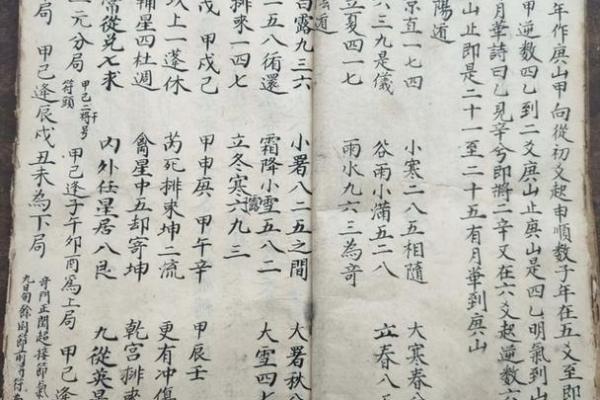 年作庚山甲向從初爻起申順數子年在五爻至即
甲逆數四乙到二爻庚山止庚山是四乙明氣到
月華詩曰乙見辛兮即將二辛又在六爻起逆數六
山止即是二十一至二十五有月華到庚山
陽遁
京直一七四 小寒二八五相隨 大寒春八
六三九是儀 谷雨小滿五二八 立春八
立夏四一七 雨水九六三為奇
遁
白露九三六 小署八二五之間 大署秋八
一五八術還 霜降小雪五八二 大雪四七
排來一四七 立冬寒露六九三
戊 甲戌己 甲申庚 甲午辛 甲辰壬
以上一蓬休 芮死排來坤二流 更有冲傷
輔星四杜週 禽星中五却寄坤 乾宮排來
當從兑七求 內外任星居八艮 九從英景
元分局 符頭 甲己二符号 甲己逢子午卯酉為上局 甲己逢
局 甲己逢辰戌丑未為下局 奇門正閏超接節氣